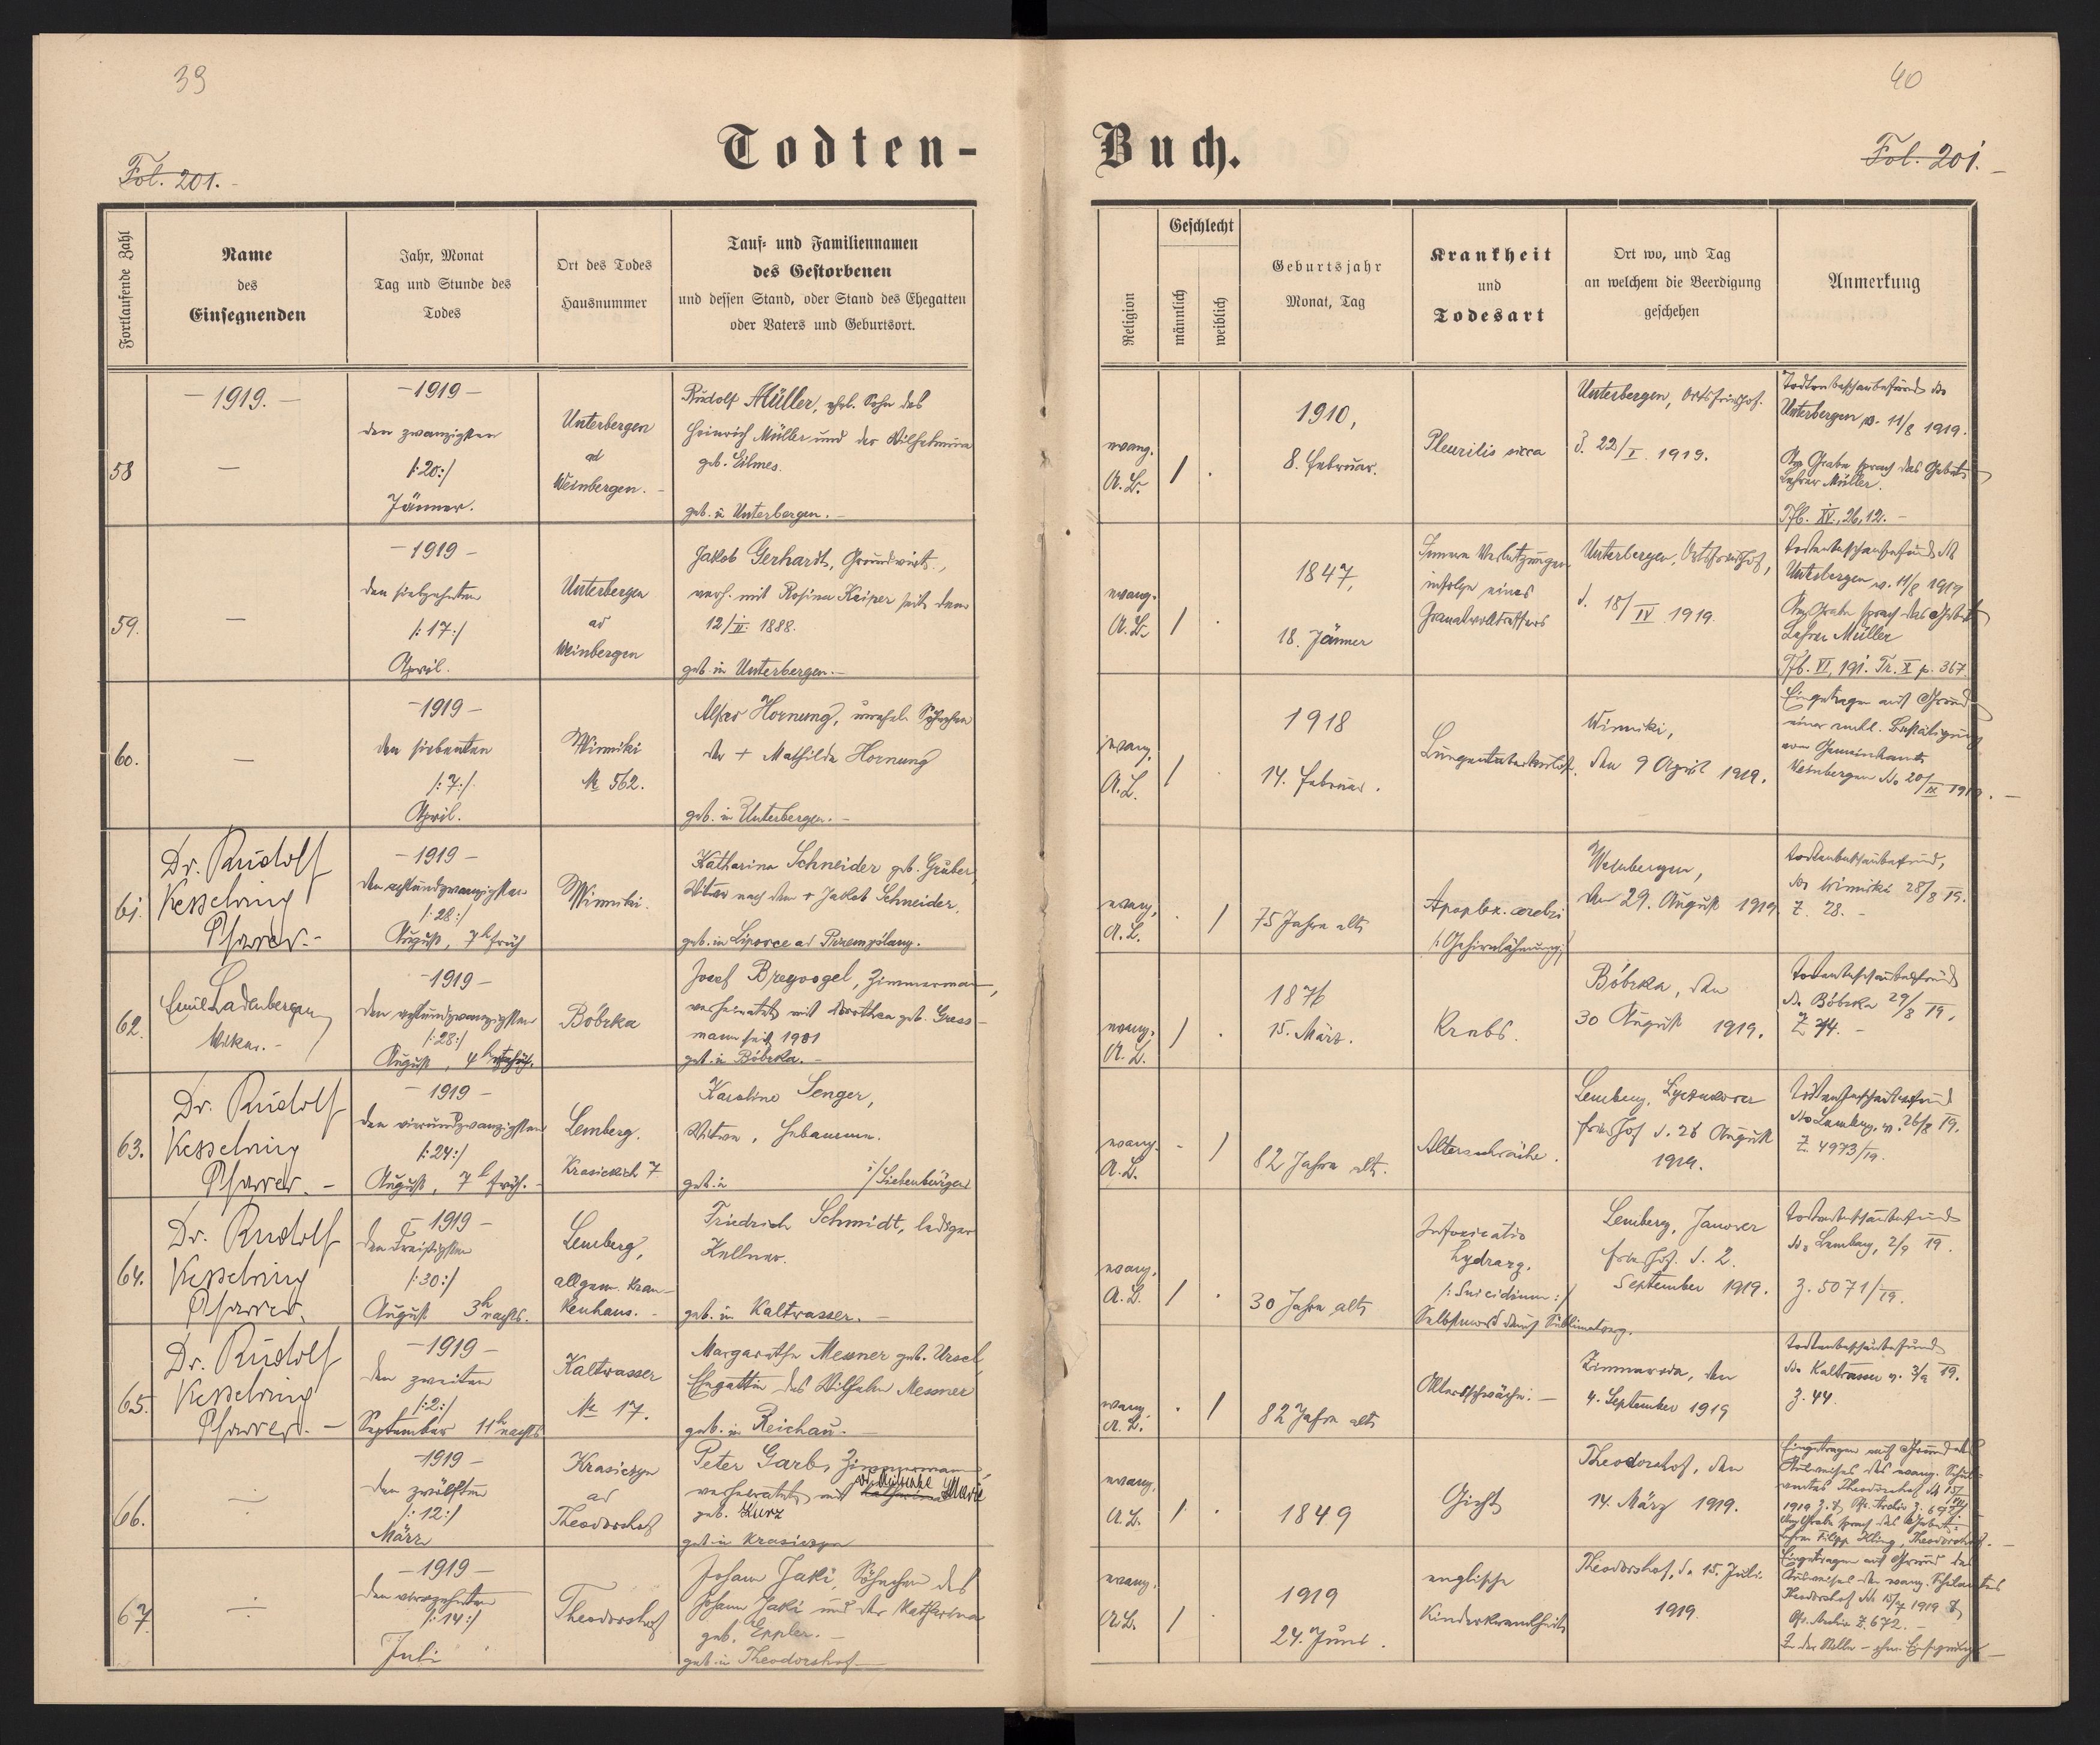 39
40
Todten-
Buch.
Fol. 201.
Fol. 201.
Fortlaufende Zahl
Name
des
Einsegnenden
Jahr, Monat
Tag und Stunde des
Todes
Ort des Todes
Hausnummer
Tauf- und Familiennamen
des Gestorbenen
und dessen Stand, oder Stand des Ehegatten
oder Vaters und Geburtsort.
Religion
Geschlecht
männlich
weiblich
Geburtsjahr
Monat, Tag
Krankheit
und
Todesart
Ort wo, und Tag
an welchem die Beerdigung
geschehen
Anmerkung
58
- 1919. -
—
- 1919 -
den zwanzigsten
/:20:/
Jänner.
Unterbergen
ad
Weinbergen. -
Rudolf Müller, ehel. Sohn des
Heinrich Müller und der Wilhelmina
geb. Eilmes.
geb. in Unterbergen. -
evang.
A.B.
/
.
1910,
8. Februar.
Pleuritis sicca
Unterbergen, Ortsfriedhof.
d. 22/I. 1919.
Todtenbeschaubefund ddo
Unterbergen v. 11/8 1919.
Am Grabe sprach das Gebet
Lehrer Müller.
Tfb. XV., 26, 12. -
59.
—
- 1919 -
den siebzehnten
/:17:/
April.
Unterbergen
ad
Weinbergen
Jakob Gerhardt, Grundwirt,
verh. mit Rosina Keiper seit dem
12/II. 1888.
geb. in Unterbergen. -
evang.
A.B.
/
.
1847,
18. Jänner
Innere Verletzungen
infolge eines
Granatvolltreffers
Unterbergen, Ortsfriedhof,
d. 18/IV 1919.
Todtenbeschaubefund dd
Unterbergen v. 11/8 1919
Am Grabe sprach das Gebet
Lehrer Müller
Tfb. VI, 191. Tr. X p. 367
60.
—
- 1919 -
den siebenten
/:7:/
April.
Winniki
№ 562.
Alfred Hornung, unehel. Söhnchen
der + Mathilde Hornung
geb. in Unterbergen. -
evang.
A.B.
/
.
1918
14. Februar.
Lungentuberkulose.
Winniki,
den 9 April 1919.
Eingetragen auf Grund
einer amtl. Bestätigung
vom Gemeindeamte
Weinbergen ddo 20/IX 1919. -
61.
Dr. Rudolf
Kesselring
Pfarrer. -
- 1919 -
den achtundzwanzigsten
/:28:/
August, 7h früh
Winniki.
Katharina Schneider geb. Gruber,
Witwe nach dem + Jakob Schneider,
geb. in Lipowce ad Przemyślany.
evang.
A.B.
.
/
75 Jahre alt
Apoplex. cerebri
/:Gehirnlähmung:/
Weinbergen,
den 29. August 1919.
Todtenbeschaubefund,
ddo Winniki 28/8 19.
Z. 28. -
62.
Emil Ladenberger
Vikar. -
- 1919 -
den achtundzwanzigsten
/:28:/
August, 4h
Bóbrka
Josef Bregvogel, Zimmermann,
verheiratet mit Dorothea geb. Gress-
mann seit 1901
geb. in Bóbrka. -
evang.
A.B.
/
.
1876
15. März.
Krebs.
Bóbrka, den
30 August 1919.
Todtenbeschaubefund
ddo Bóbrka 29/8 19.
Z. 74. -
63.
Dr. Rudolf
Kesselring
Pfarrer. -
- 1919 -
den vierundzwanzigsten
/:24:/
August, 7h früh. -
Lemberg.
Krasickich 7
Karoline Senger,
Witwe, Hebamme.
geb. in i/Siebenbürgen
evang.
A.B.
-
/
82 Jahre alt.
Altersschwäche.
Lemberg, Lyczakower
Friedhof d. 26 August
1919.
Todtenbeschaubefund
ddo Lemberg, v. 26/8 19.
Z. 4973/19.
64.
Dr. Rudolf
Kesselring
Pfarrer.
- 1919 -
den dreißigsten
/:30:/
August 3h nachts.
Lemberg,
allgem. Kran-
kenhaus. -
Friedrich Schmidt, lediger
Kellner.
geb. in Kaltwasser. -
evang.
A.B.
/
.
30 Jahre alt
Intoxicatio
hydrarg.
/:Suicidium:/
Selbstmord durch Sublimatverg.
Lemberg, Janower
Friedhof. d. 2.
September 1919.
Todtenbeschaubefund
ddo Lemberg, 2/9 19.
Z. 5071/19.
65.
Dr. Rudolf
Kesselring
Pfarrer. -
- 1919 -
den zweiten
/:2:/
September 11h nachts
Kaltwasser
№ 17.
Margarethe Messner geb. Ursel,
Ehegattin des Wilhelm Messner
geb. in Reichau. -
evang.
A.B.
.
/
82 Jahre alt
Altersschwäche. -
Zimnawoda, den
4. September 1919
Todtenbeschaubefund
ddo Kaltwasser v. 3/9 19.
Z. 44.
66.
÷
- 1919 -
den zwölften
/:12:/
März
Krasiczyn
ad
Theodorshof
Peter Garb, Zimmermann,
verheiratet mit Katharina Marie
geb. Kurz
geb. in Krasiczyn
evang.
A.B.
/
.
1849
Gicht
Theodorshof, den
14. März 1919.
Eingetragen auf Grund des
Ausweises des evang. Schul-
amtes Theodorshof
Am Grabe sprach das Gebet:
Lehrer Filipp Kling, Theodorshof. -
67.
÷
- 1919 -
den vierzehnten
/:14:/
Juli
Theodorshof
Johann Jaki, Söhnchen des
Johann Jaki und der Katharina
geb. Eppler. -
geb. in Theodorshof -
evang.
A.B.
/
.
1919
24. Juni.
englische
Kinderkrankheit
Theodorshof, d. 15. Juli.
1919.
Eingetragen auf Grund des
Ausweises des evang. Schulamtes
Theodorshof ddo 15/7 1919
Pfr. Archiv Z. 672. -